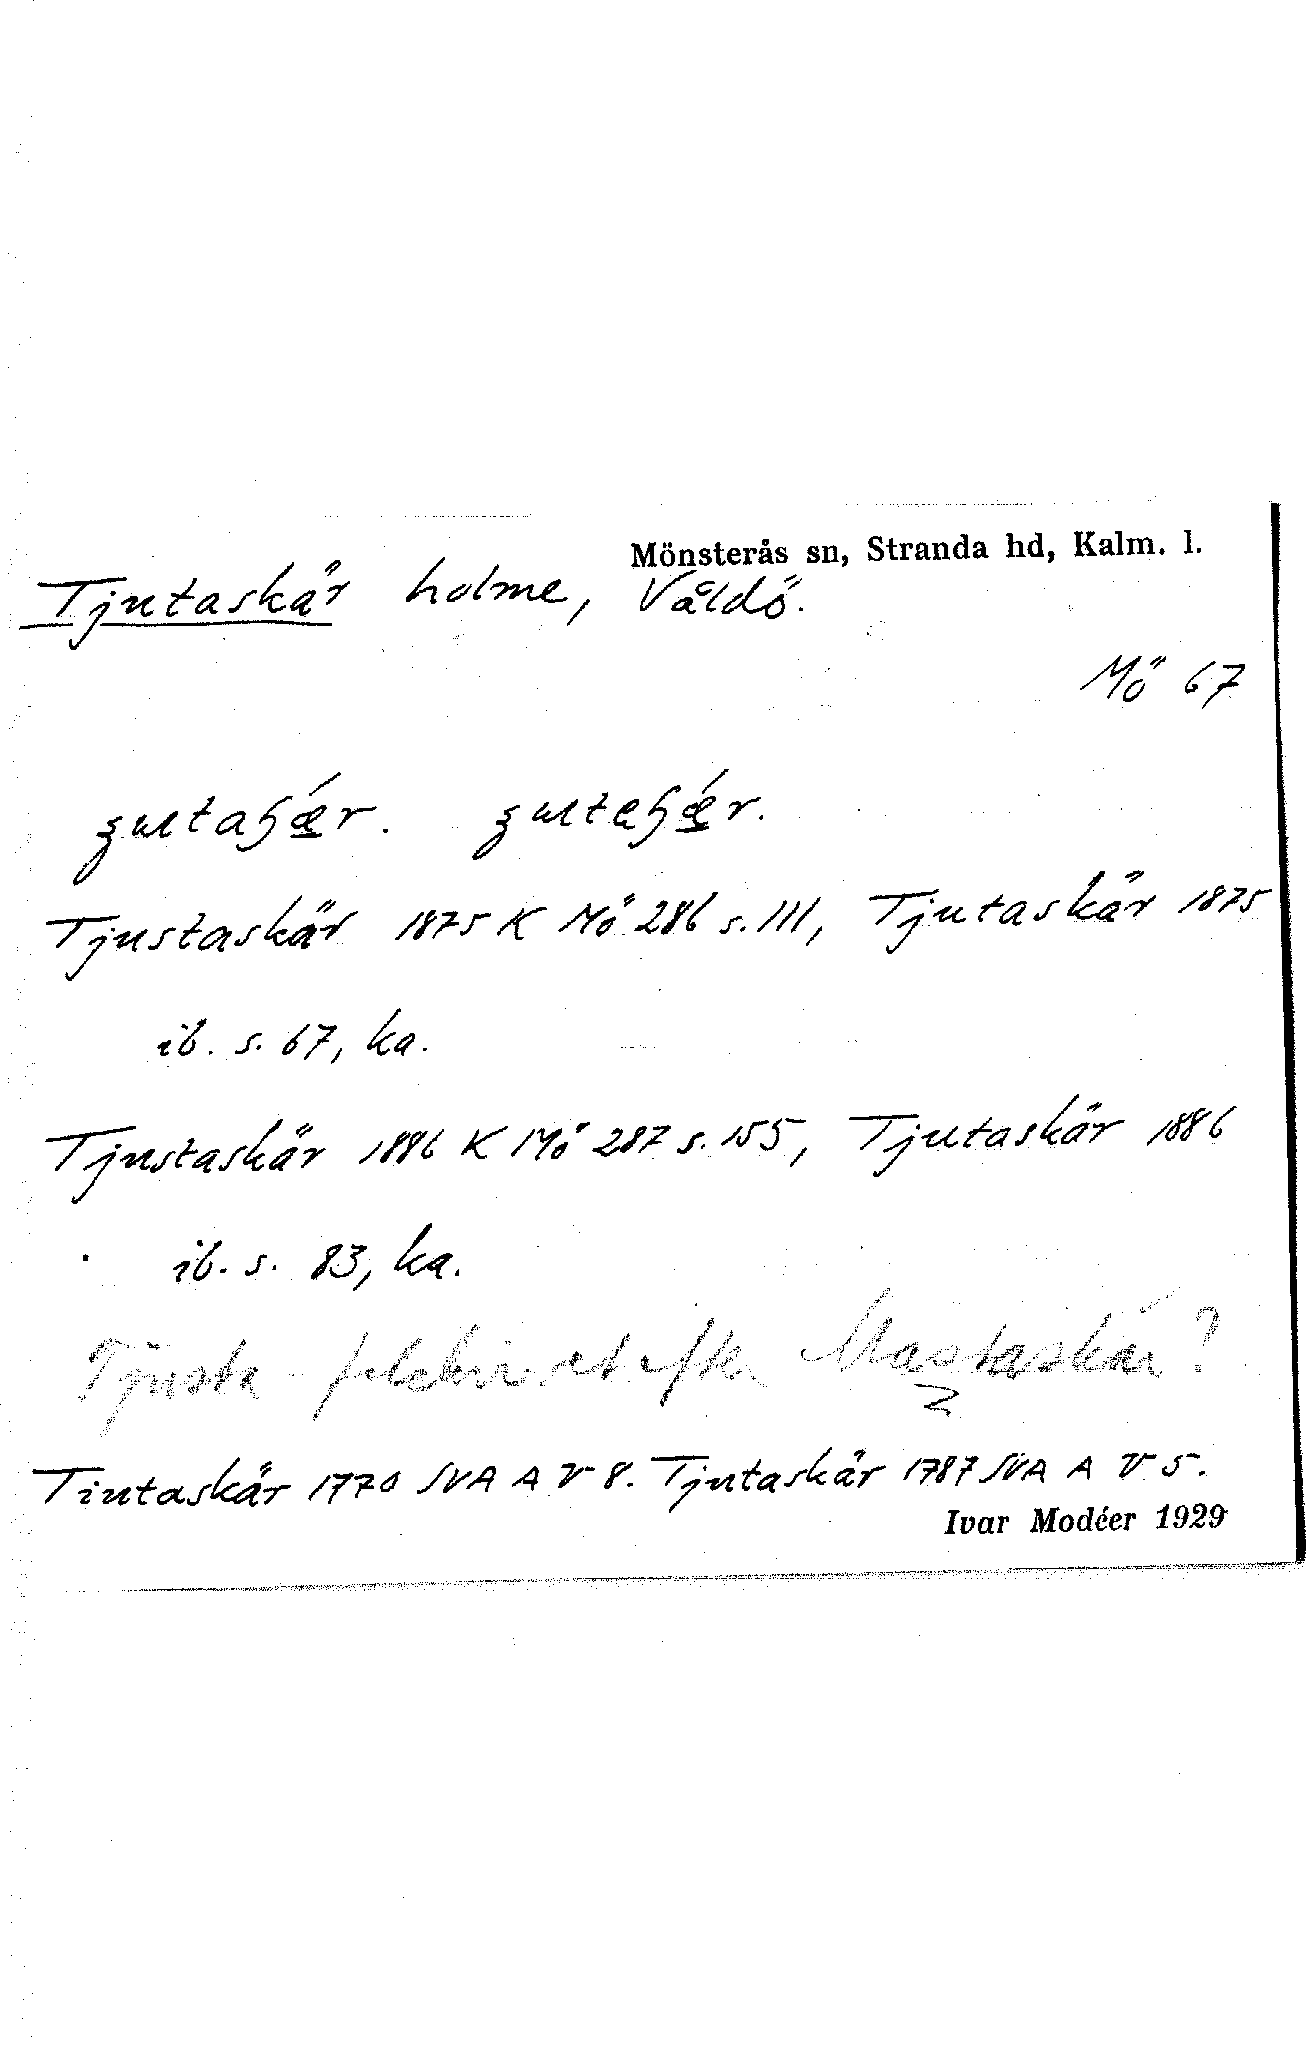 Mönsterås sn, Stranda hd, Kalm. l.
Tjutaskär holme, Våldö.
Mö 67
Tjustaskär 1875 K Mö 286 s. 111, Tjutaskär 1875
ib. s. 67, ka.
Tjustaskär 1886 K Mö 287 s. 155, Tjutaskär 1886
ib. s. 83, ka.
Tjusta- felskrivet efter Mastaskär?
Tiutaskär 1770 SVA A V 8. Tjutaskär 1787 SVA A V 5.
Ivar Modéer 1929